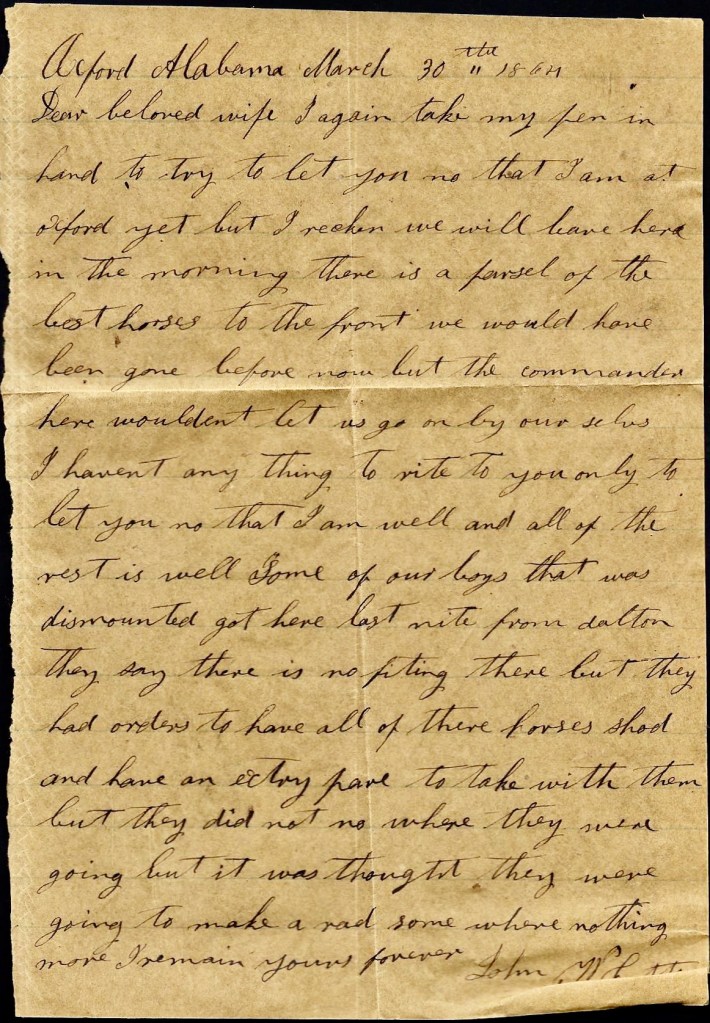 Oxford Alabama March 30 th " 1864
Dear beloved wife I again take my pen in
hand to try to let you no that I am at
oxford yet but I recken we will leave here
in the morning there is a parsel of the
best horses to the front we would have
been gone before now but the commander
here wouldent let us go on by our selvs
I havent any thing to rite to you only to
let you no that I am well and all of the
rest is well Some of our boys that was
dismounted got here last nite from dalton
they say there is no fiting there but they
had orders to have all of there horses shod
and have an extry pare to take with them
but they did not no where they were
going but it was thought they were
going to make a rad some where nothing
more I remain yours forever John W